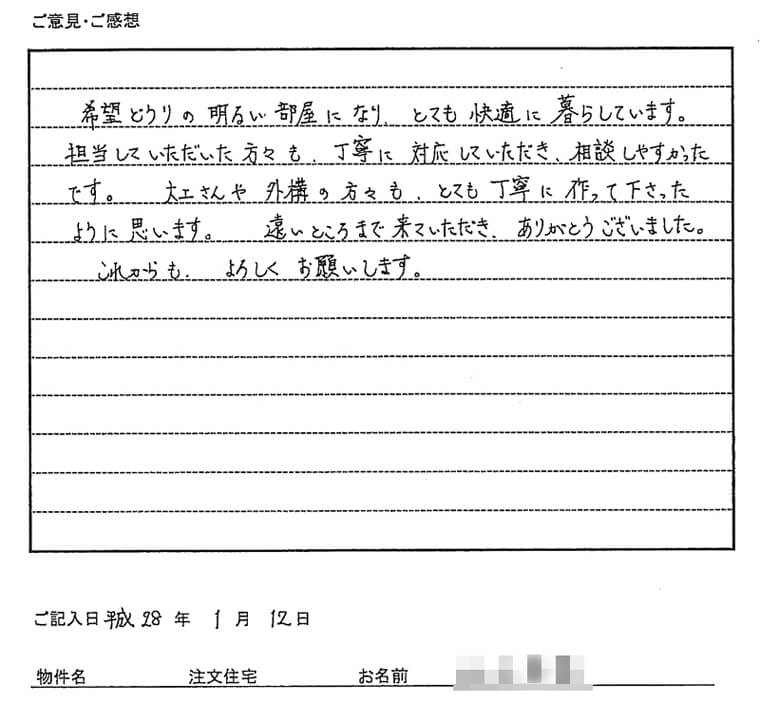 ご意見・ご感想
希望どうりの 明るい 部屋に なり、とても 快適に 暮らしています。
担当していただいた 方々も、丁寧に 対応していただき、相談しやすかった
です。 大工さんや 外構の 方々も、とても 丁寧に 作って下さった
ように 思います。 遠いところまで 来ていただき、ありがとうございました。
これからも、よろしく お願いします。
ご記入日 平成 28 年 1 月 12 日
物件名 注文住宅 お名前